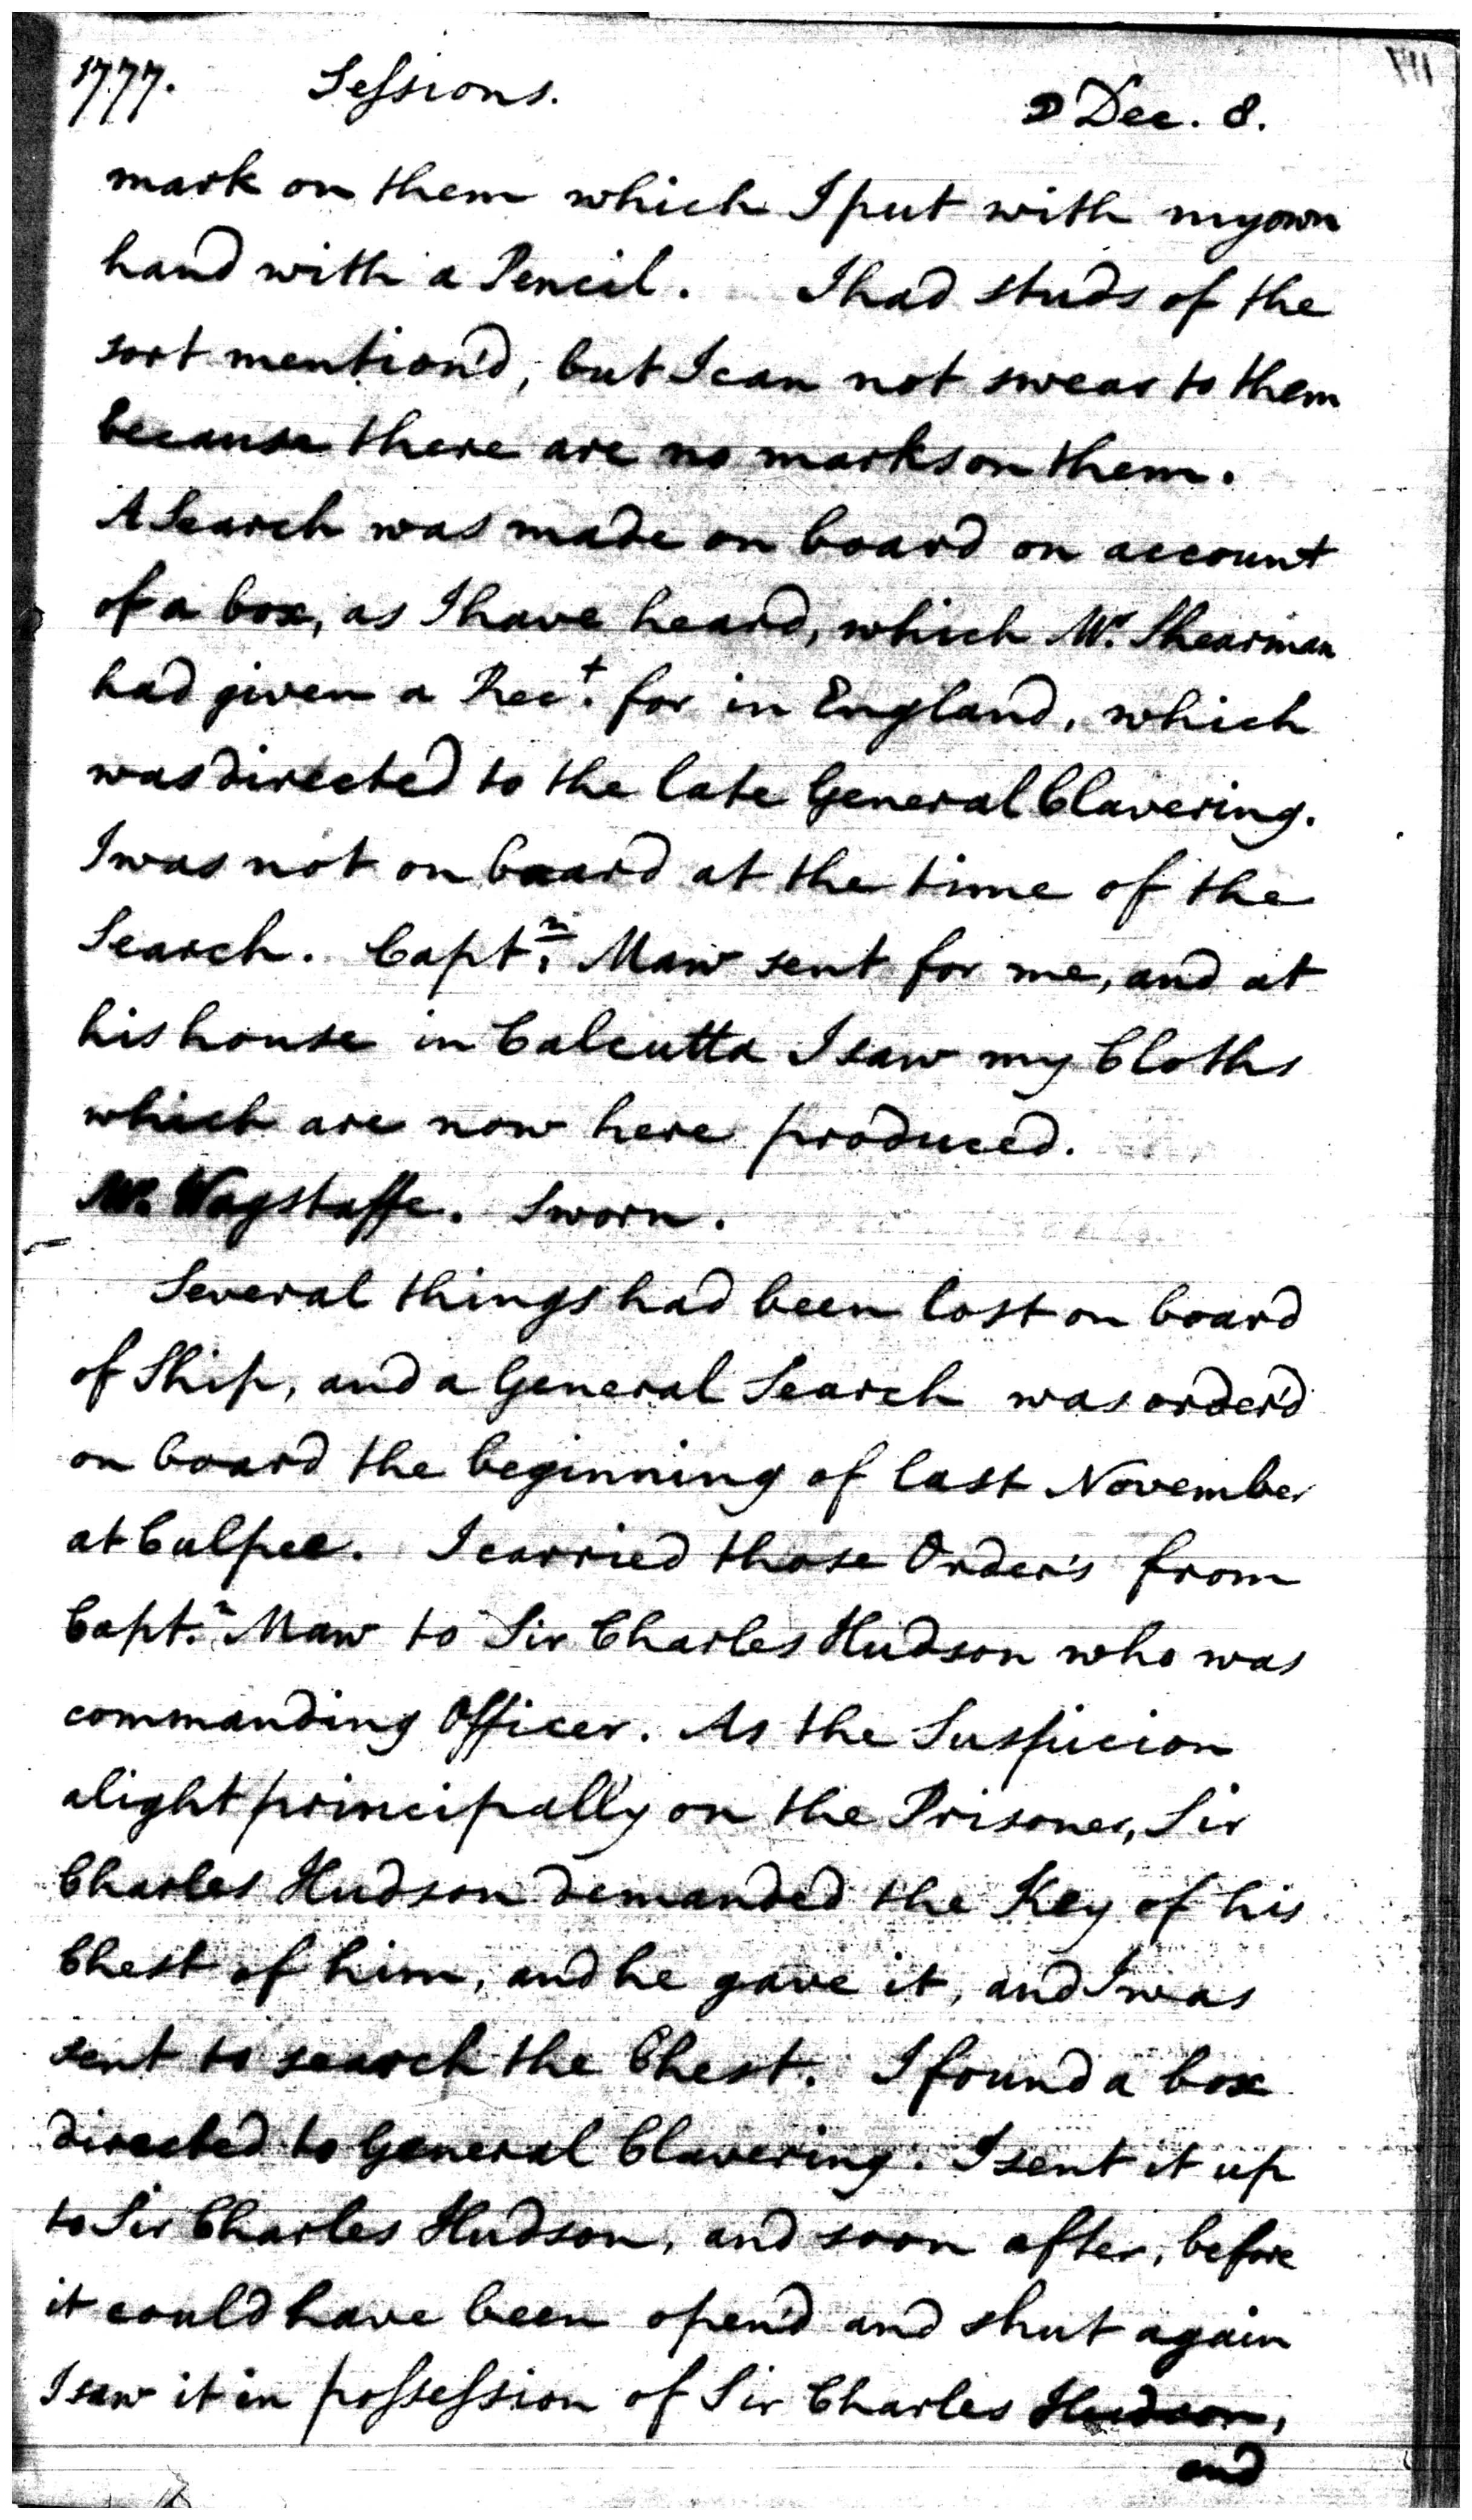 1777. Sessions. ☽ Dec. 8.
mark on them which I put with my own
hand with a Pencil. I had studs of the
sort mention'd, but I can not swear to them
because there are no marks on them.
A Search was made on board on account
of a box, as I have heard, which Mr. Shearman
had given a Rect. for in England, which
was directed to the late General Clavering.
I was not on board at the time of the
Search. Captn. Maw sent for me, and at
his house in Calcutta I saw my Cloths
which are now here produced.
Mr. Wagstaffe. Sworn.
Several things had been lost on board
of Ship, and a General Search was order'd
on board the beginning of last November
at Culpee. I carried those Order's from
Captn. Maw to Sir Charles Hudson who was
commanding Officer. As the Suspicion
alight principally on the Prisoner, Sir
Charles Hudson demanded the Key of his
Chest of him, and he gave it, and I was
sent to search the Chest. I found a box
directed to General Clavering. I sent it up
to Sir Charles Hudson, and soon after, before
it could have been open'd and shut again
I saw it in possession of Sir Charles Hudson,
and